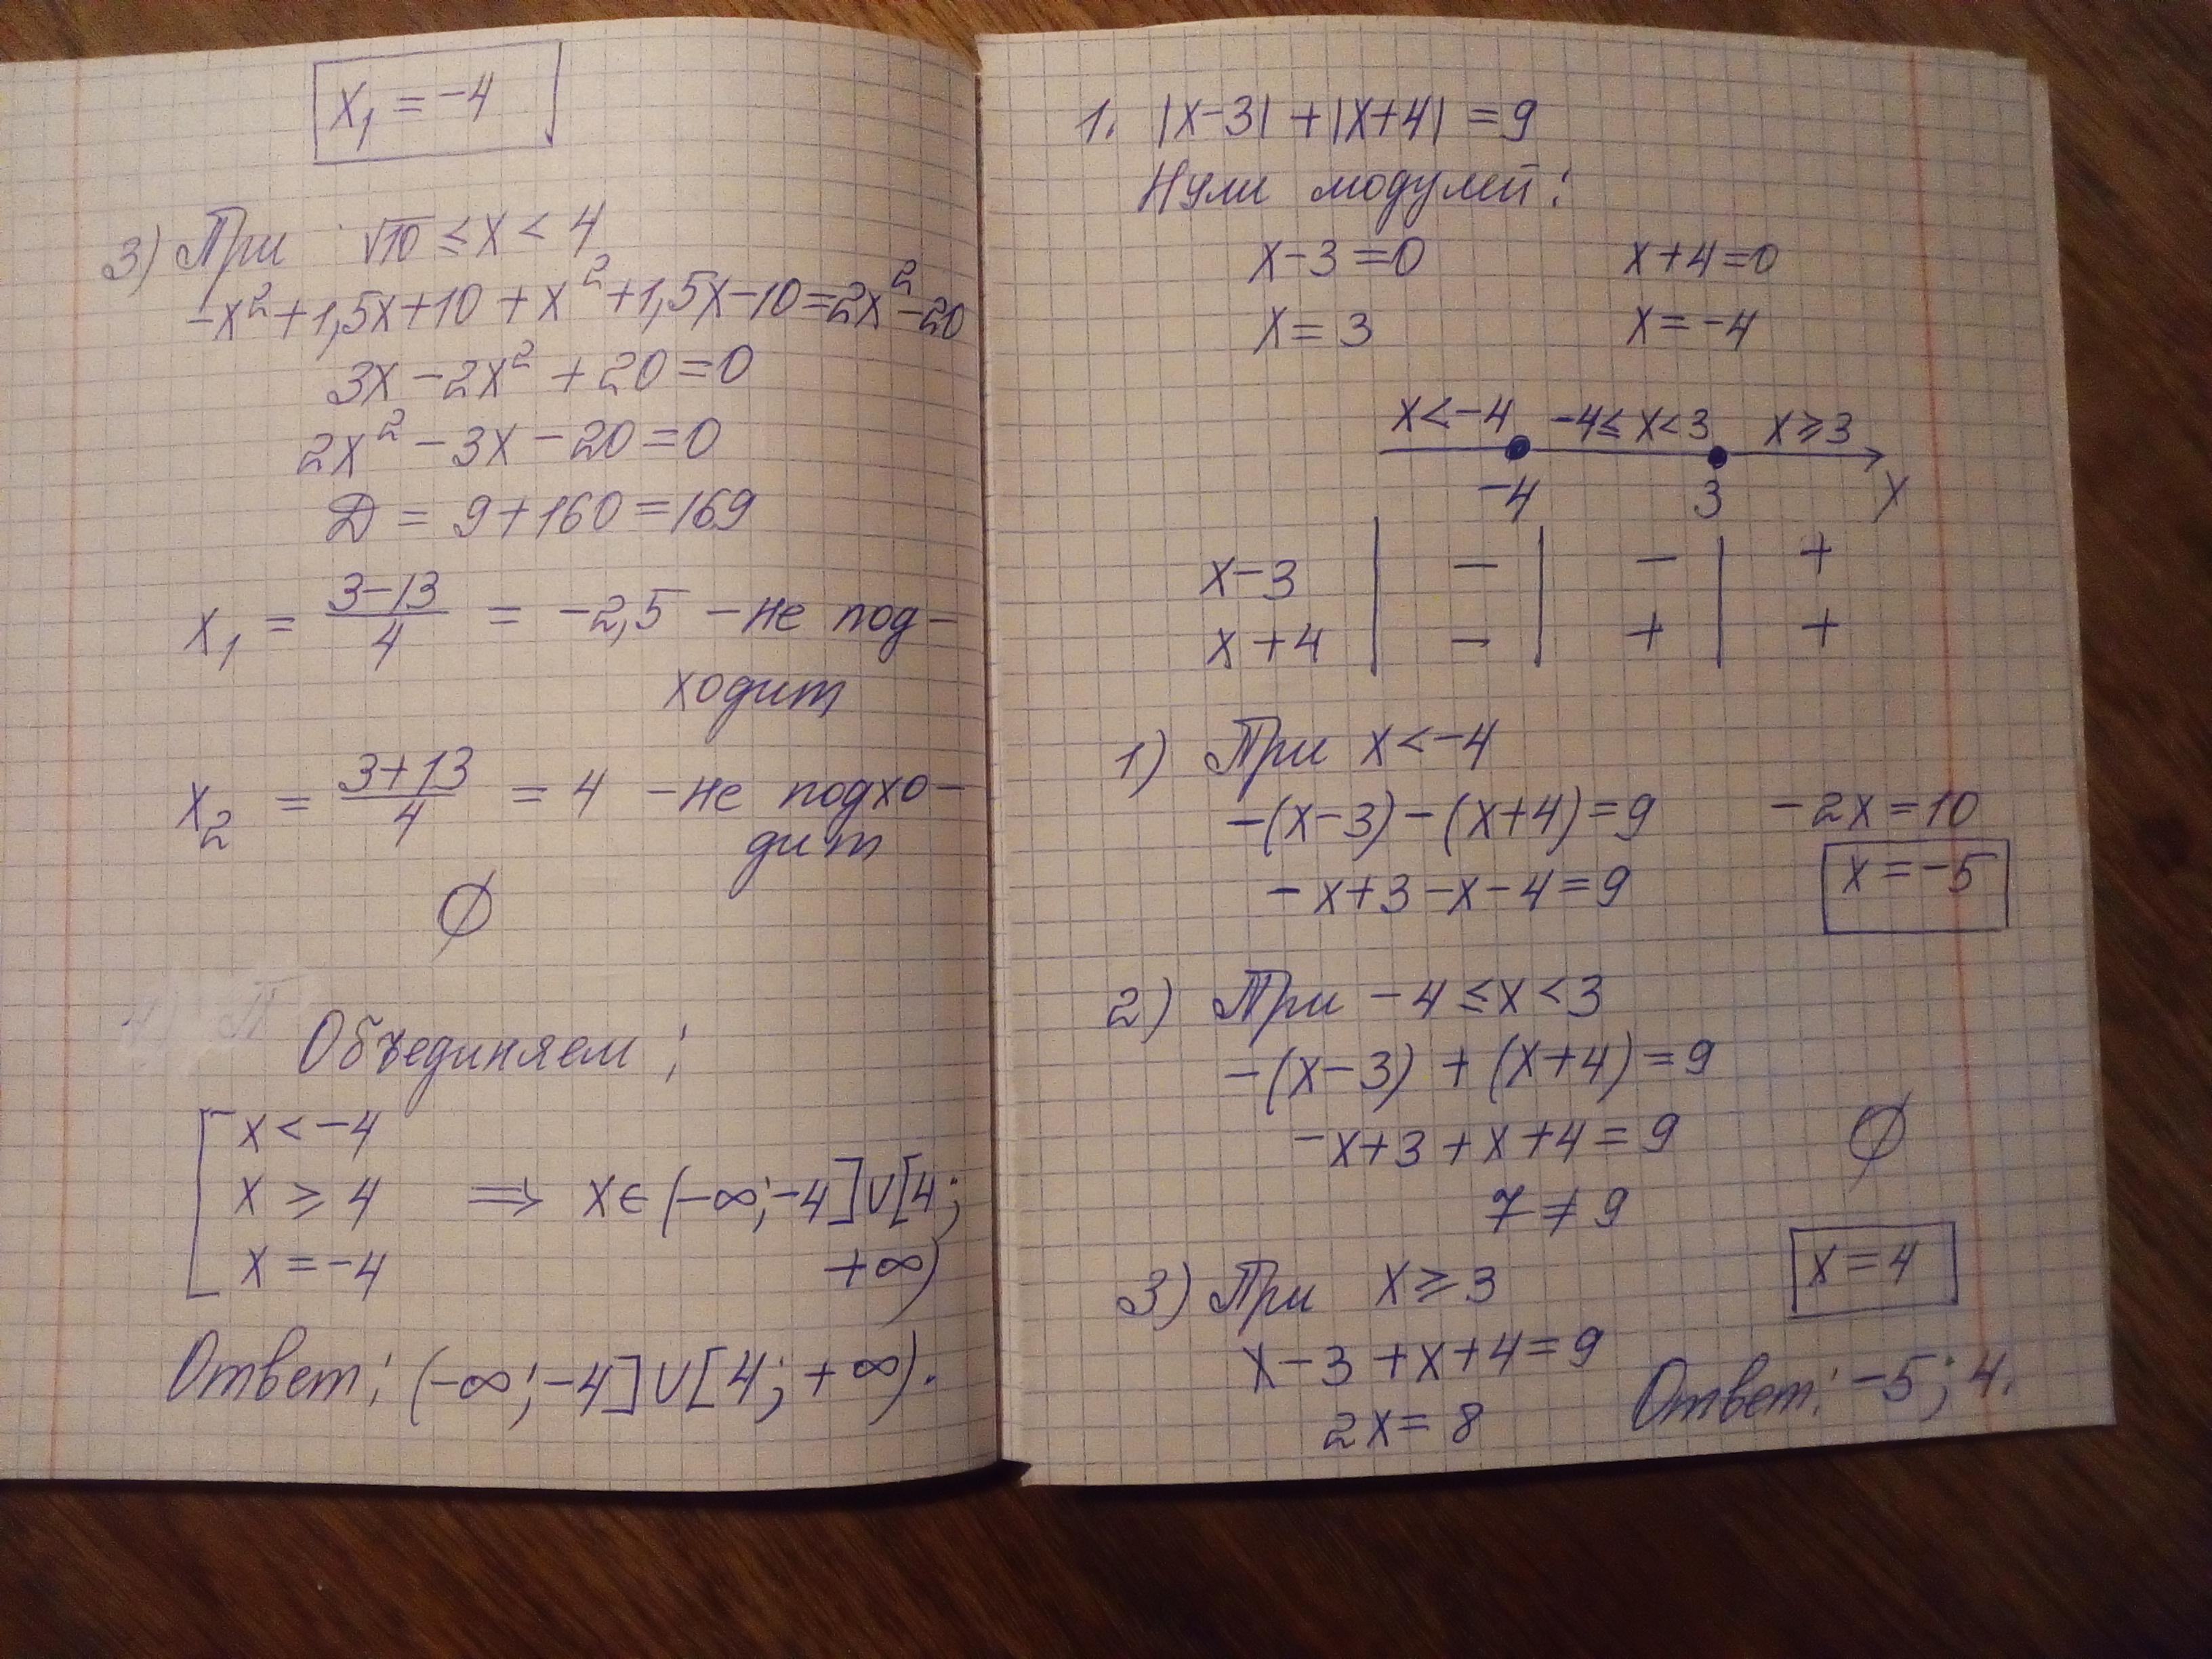 x₁ = -4
3) При √10 ≤ x < 4
-x² + 1,5x + 10 + x² + 1,5x - 10 = 2x² - 20
3x - 2x² + 20 = 0
2x² - 3x - 20 = 0
D = 9 + 160 = 169
x₁ = (3-13)/4 = -2,5 - не под-
ходит
x₂ = (3+13)/4 = 4 - не подхо-
дит
∅
Объединяем:
[ x < -4
x ≥ 4 ⇒ x ∈ (-∞; -4] ∪ [4;
x = -4 +∞)
Ответ: (-∞; -4] ∪ [4; +∞).
1. |x-3| + |x+4| = 9
Нули модулей:
x-3 = 0 x+4 = 0
x = 3 x = -4
x < -4 -4 ≤ x < 3 x ≥ 3
-4 3 x
x-3 | - | - | +
x+4 | - | + | +
1) При x < -4
-(x-3) - (x+4) = 9 -2x = 10
-x+3-x-4 = 9 x = -5
2) При -4 ≤ x < 3
-(x-3) + (x+4) = 9
-x+3+x+4 = 9 ∅
7 ≠ 9
3) При x ≥ 3 x = 4
x-3+x+4 = 9
2x = 8 Ответ: -5; 4.